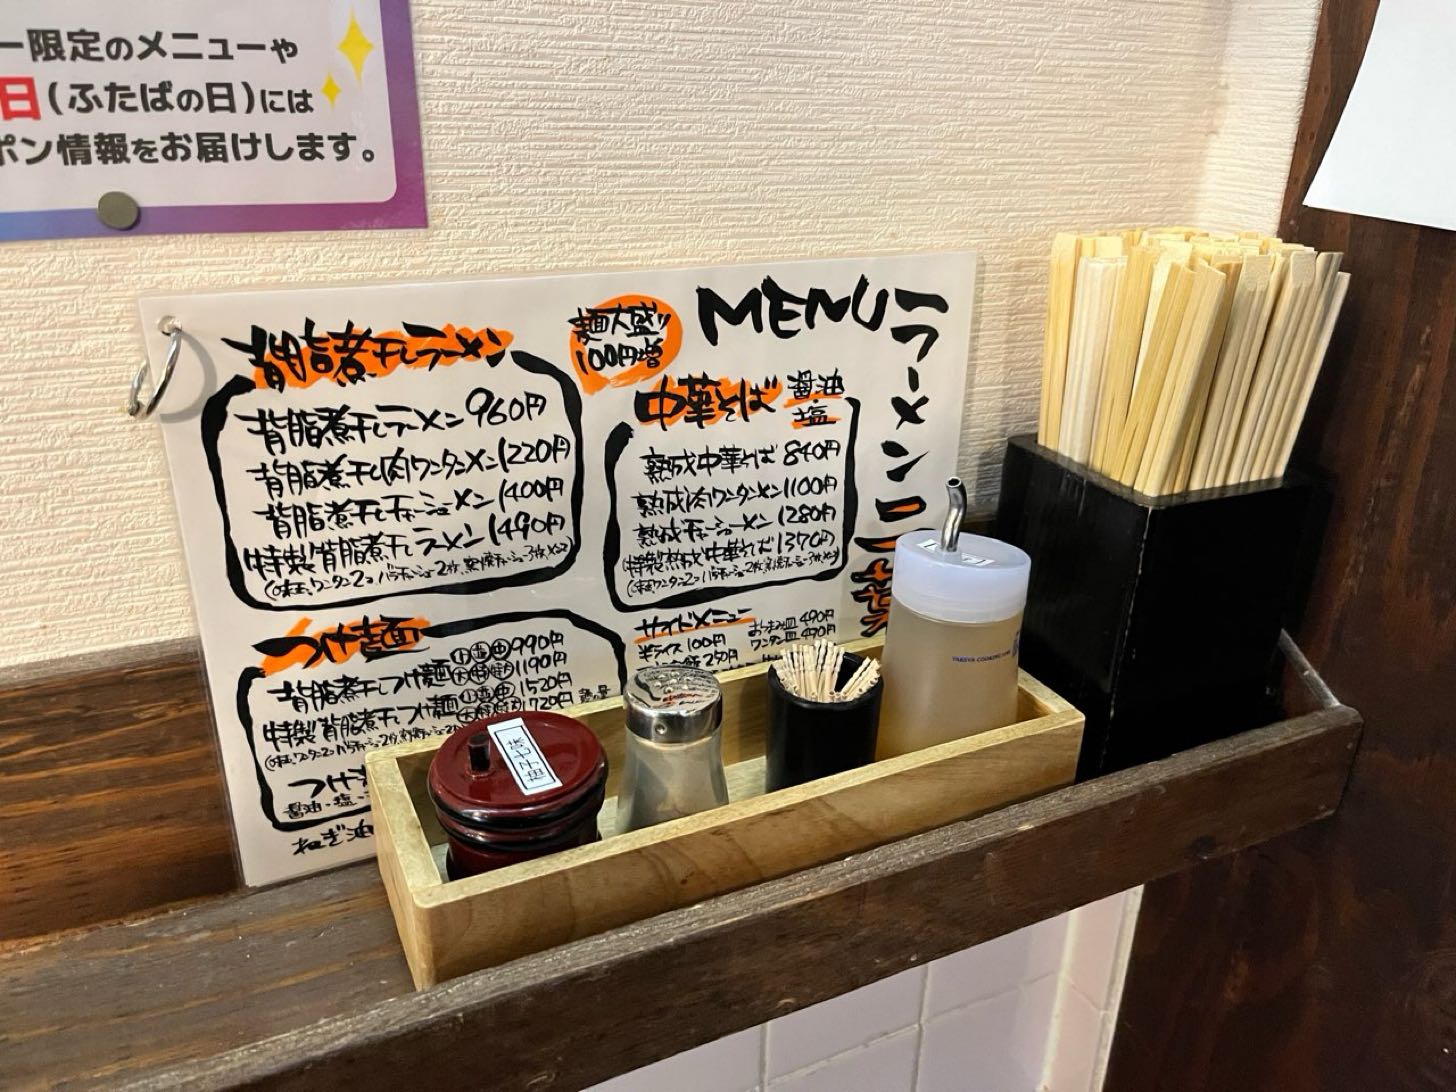 ー限定のメニューや
日(ふたばの日)には
ポン情報をお届けします。
MENU
ラーメン二葉
麺大盛り
100円増
背脂煮干しラーメン
背脂煮干しラーメン 960円
背脂煮干し肉ワンタンメン 1220円
背脂煮干しチャーシューメン 1400円
特製背脂煮干しラーメン 1490円
中華そば 醤油・塩
熟成中華そば 840円
熟成肉ワンタンメン 1100円
熟成チャーシューメン 1280円
特製熟成中華そば 1370円
つけ麺
背脂煮干しつけ麺 小並中 990円
大特 1190円
特製背脂煮干しつけ麺 小並中 1520円
1720円
つけ
醤油・塩・
ねぎ油
サイドメニュー
半ライス 100円
250円
おつまみ皿 490円
ワンタン皿 490円
柚子七味